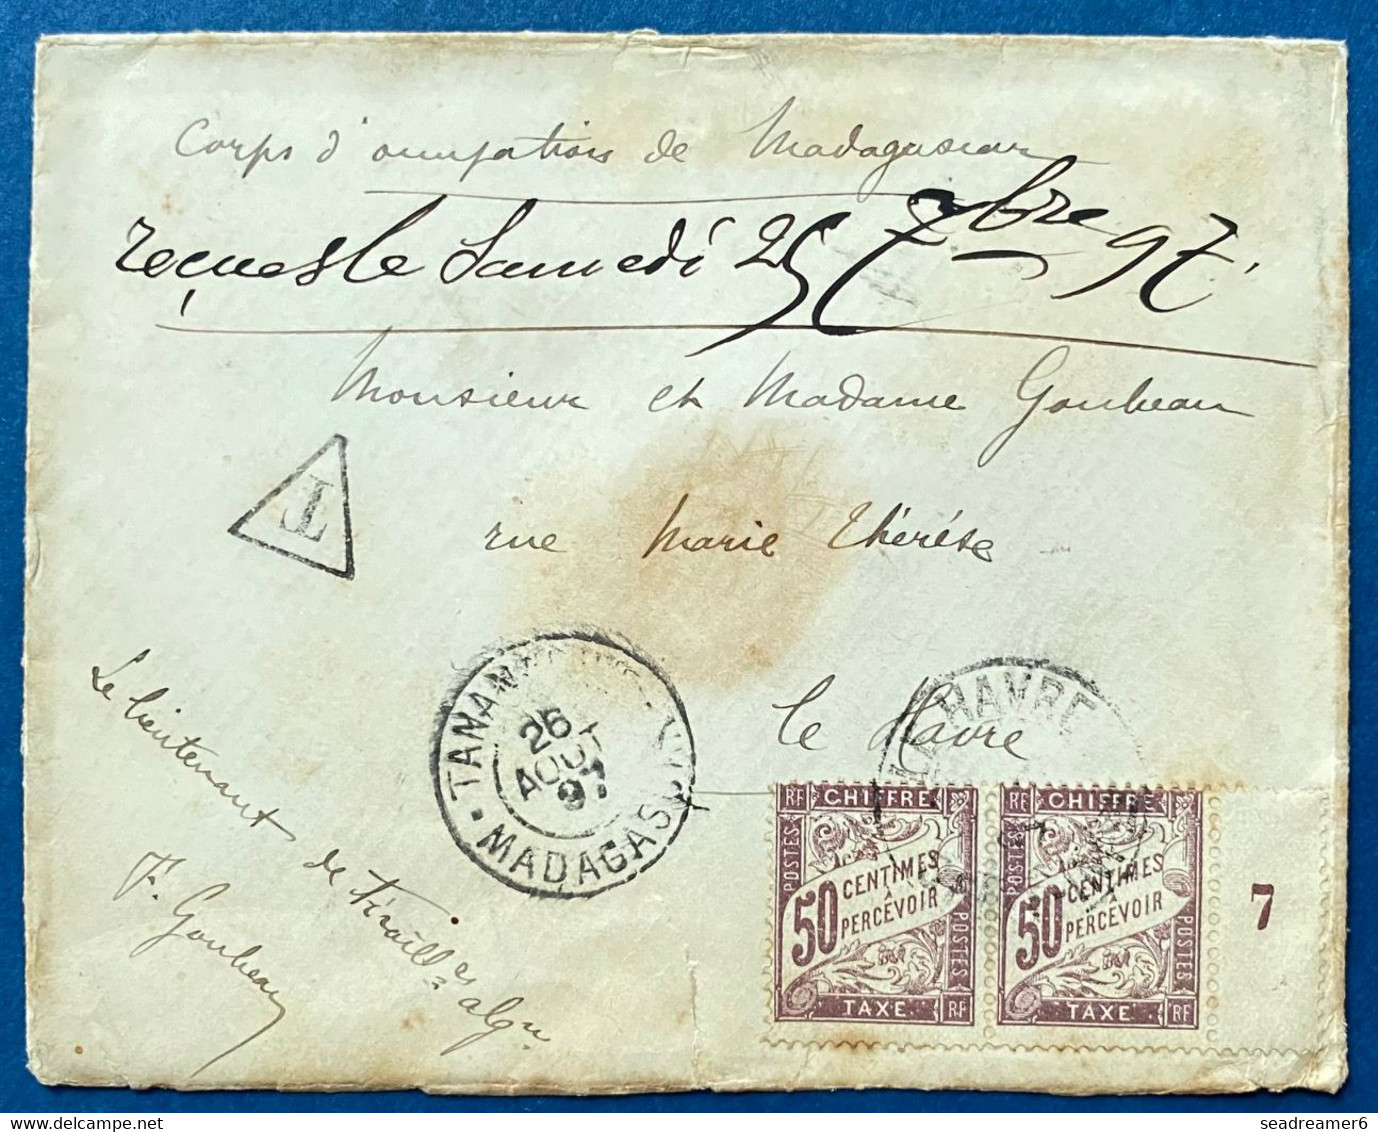 Corps d'occupation de Madagascar
reçues le Samedi 25 7bre 97.
Monsieur et Madame Goubeau
T
rue Marie Thérèse
le Havre
TANANARIVE
26
AOUT
97
MADAGASCAR
LE HAVRE
Le lieutenant de tiraill.rs algn.
F. Goubeau
RF CHIFFRE
POSTES
50 CENTIMES
À
PERCEVOIR
POSTES
TAXE RF
RF CHIFFRE
POSTES
50 CENTIMES
À
PERCEVOIR
POSTES
TAXE RF
7
© delcampe.net
seadreamer6